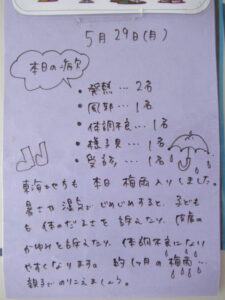 5月29日(月)
本日の病欠
・発熱…2名
・風邪…1名
・体調不良…1名
・様子見…1名
・受診…1名
東海地方も 本日 梅雨入りしました。
暑さや 湿気で じめじめすると、子ども
も 体のだるさを 訴えたり、皮膚の
かゆみを訴えたり、体調不良になり
やすくなります。 約1ヶ月の 梅雨…
親子でのりこえましょう。